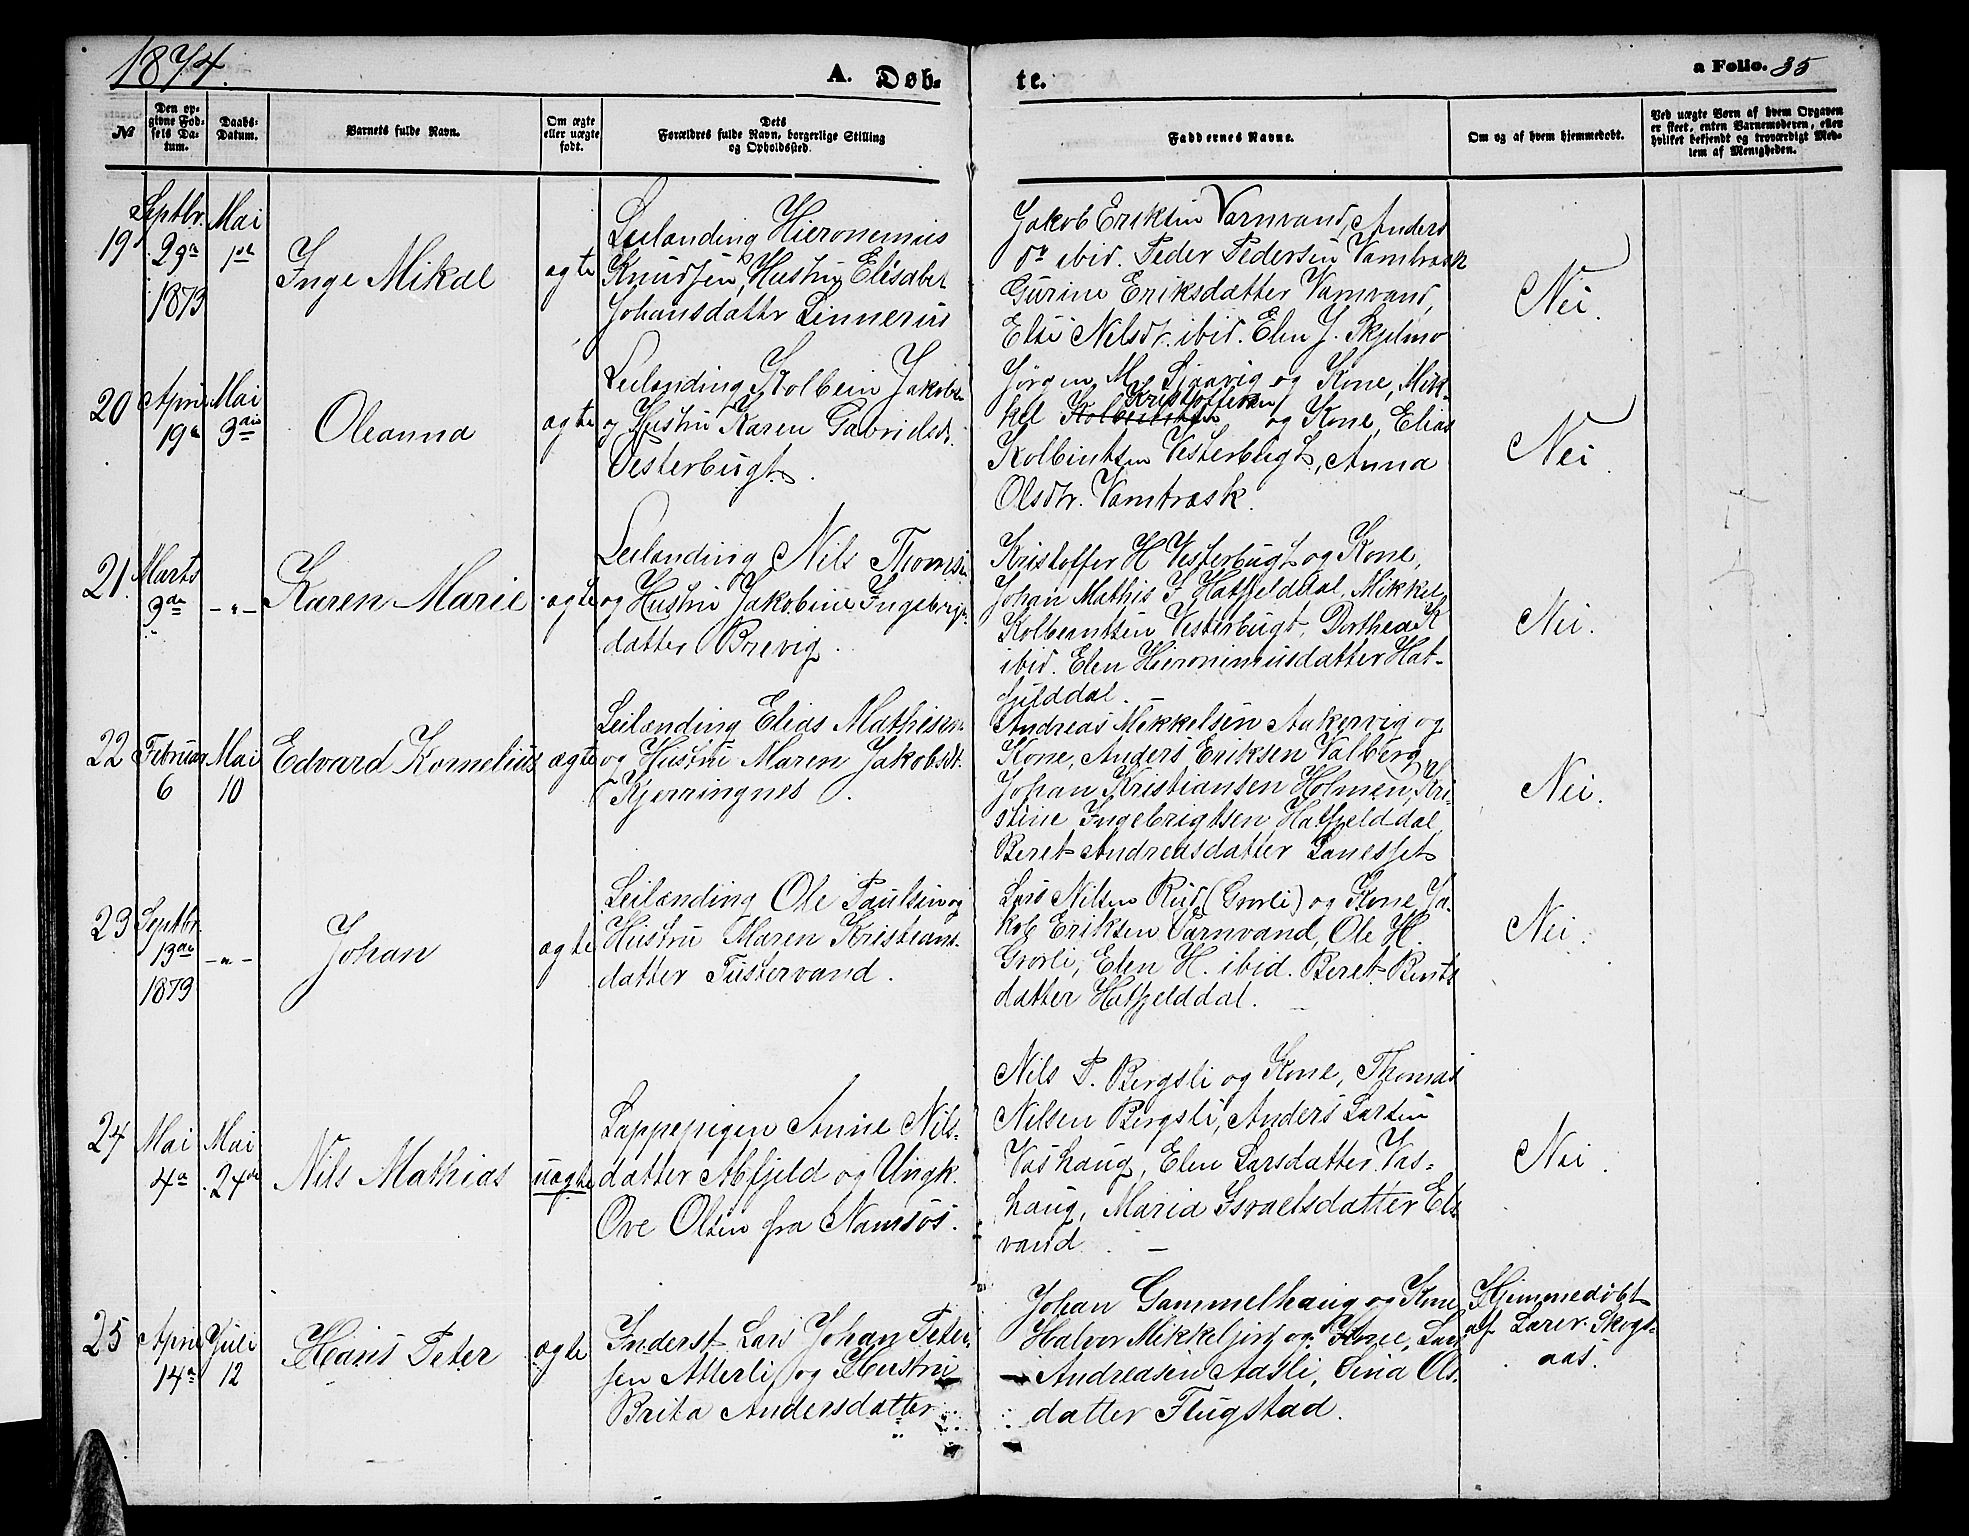 1874.
A. Døb-
te.
a Folio. 35
№
Den op-
givne Fød-
sels Da-
tum.
Daabs-
Datum.
Barnets fulde Navn.
Om ægte
eller uægte
født.
Dets
Forældres fulde Navn, borgerlige Stilling
og Opholdssted.
Faddernes Navne.
Om og af hvem hjemmedøbt.
Ved uægte Børn af hvem Opgaven
er skeet, enten Barnemoderen, eller
hvilket bekjendt og troværdigt Med-
lem af Menigheden.
19
Septbr.
29de
1873
Mai
1ste
Inge Mikal
ægte
Leilænding Hieronemus
Knudsen, Hustru Elisabet
Johansdatter
Jakob Eriksen Varnvand, Anders
do ibid. Peder Pedersen Vamtrask
Gurine Eriksdatter Varnvand,
Else Nilsdr. ibid. Elen J. Skjelmo
Nei.
20
April
19de
Mai
3die
Oleanna
ægte
Leilænding Kolbein Jakobsen
og Hustru Karen Gabrielsdr.
Vesterbugt.
Jørgen M. Sjaavig og Kone, Mik-
Kristoffersen
kel Kolbeintsen og Kone, Elias
Kolbintsen Vesterbugt, Anna
Olsdtr. Vamtrask.
Nei.
21.
Marts
3de
-"-
Karen Marie
ægte
Leilænding Nils Thomsen
og Hustru Jakobine Ingebrigt-
datter Brevig.
Kristoffer H Vesterbugt og Kone,
Johan Mathis J Hatfjelddal, Mikkel
Kolbeintsen Vesterbugt, Dorthea K
ibid. Elen Hieronimusdatter Hat-
fjelddal.
Nei.
22
Februar
6
Mai
10
Edvard Kornelius
ægte
Leilænding Elias Mathisen
og Hustru Maren Jakobsdt.
Kjerringnes.
Andreas Mikkelsen Aakervig og
Kone, Anders Eriksen Valberg,
Johan Kristiansen Holmen, Kri-
stine Ingebrigtsen Hatfjelddal
Beret Andreasdatter
Nei.
23
Septbr.
13de
1873
-"-
Johan
ægte
Leilænding Ole Paulsen og
Hustru Maren Kristians-
datter Tustervand.
Lars Nilsen Rud (Grorli) og Kone Ja-
kob Eriksen Varnvand, Ole H.
Grorli, Elen H. ibid. Beret Bents
datter Hatfjelddal.
Nei.
24
Mai
4de
Mai
24de
Nils Mathias
uægte
Lappepigen Anne Nils-
datter Abfjeld og Ungk.
Ove Olsen fra Namsos.
Nils P. Bergsli og Kone, Thomas
Nilsen Bergsli, Anders Larsen
Vashaug, Elen Larsdatter Vas-
haug, Maria Israelsdatter Els
vand. —
Nei.
25
April
14de
Juli
12
Hans Peter
ægte
Inderst Lars Johan Peter-
sen Atterli og Hustru
Brita Andersdatter
Johan Gammelhaug og Kone
Halvor Mikkeljord og Kone, Lars
Andreasen Aasli, Lina Ols-
datter Flugstad.
Hjemmedøbt
af Lærer Skogs-
aas.